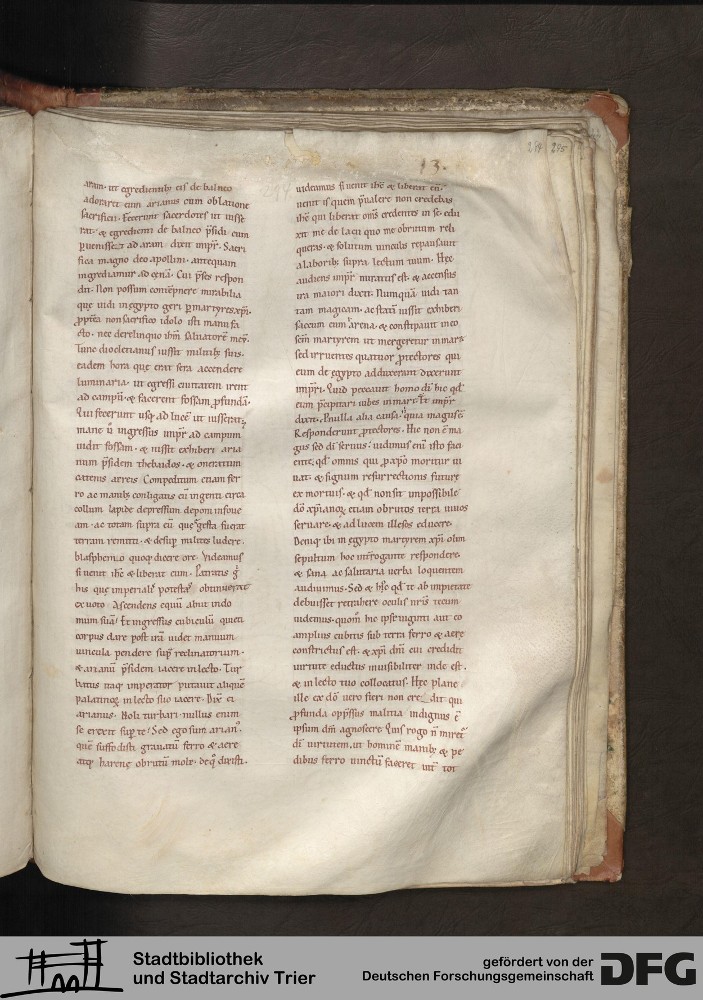 249 295
13.
aram. ut egredientib; eis de balneo
adoraret eum arianus cum oblatione
sacrificii. Fecerunt sacerdotes ut iusse
rat. & egredienti de balneo p̄sidi cum
puenisset ad aram. dixit impr̄. Sacri
fica magno deo apollini. antequam
ingrediamur ad cenā. Cui p̄ses respon
dit. Non possum contēpnere mirabilia
que uidi in egypto geri p martyres xp̄i.
ppt̄ea non sacrifico idolo isti manu fa
cto. nec derelinquo ihm̄ saluatorē meū.
Tunc dioclecianus iussit militib; suis.
eadem hora que erat sera accendere
luminaria. ut egressi ciuitatem irent
ad campū. & facerent fossam pfundā.
Qui fecerunt usq; ad lucē ut iusserat.
mane ū ingressus impr̄ ad campum
uidit fossam. & iussit exhiberi aria
num p̄sidem thebaidos. & oneratum
catenis ferreis. Compeditum etiam fer
ro ac manib; conligatis cū ingenti circa
collum lapide depressum deponi in foue
am. ac totam supra eū que egesta fuerat
terram remitti. & desup milites ludere.
blasphemo quoq; dicere ore. Videamus
si uenit ihc̄ & liberat eum. Patratis g̊
his que imperialis potestas obtinuerat
ex uoto. Ascendens equū abiit in do
mum suā. Et ingressus cubiculū quieti
corpus dare post irā uidet manuum
uincula pendere sup reclinatorium.
& arianū p̄sidem iacere in lecto. Tur
batus itaq; imperator putauit aliquē
palatinoꝝ in lecto suo iacere. Dix̄ ei
arianus. Noli turbari. nullus enim
se erexit sup te. Sed ego sum arian᷒.
quē suffodisti grauatū ferro & aere
atq; harenę obrutū mole. de q̊ dixisti.
uideamus si uenit ihc̄ & liberat eū.
uenit is quem p̄ualere non credebas
ihc̄ qui liberat om̄s credentes in se. edu
xit me de lacu quo me obrutum reli
queras. & solutum uinculis repausauit
a laborib; supra lectum tuum. Hęc
audiens impr̄ miratus est. & accensus
ira maiori dixit. Numquā uidi tan
tam magicam. ac statī iussit exhiberi
saccum cum arena. & constipauit in eo
sc̄m martyrem ut mergeretur in mare
sed irruentes quatuor ptectores qui
eum de egypto adduxerant dixerunt
impr̄i. Quid peccauit homo di hic qd
eum p̄cipitari iubes in mare. Et impr̄
dixit. P nulla alia causa. quia magus ē.
Responderunt ptectores. Hic non ē ma
gus sed di seruus. uidimus enī isto faci
ente. qd omnis qui p xp̄o moritur ui
uat. & signum resurrectionis future
ex mortuis. & qd non sit impossibile
dō xp̄ianoꝝ etiam obrutos terra uiuos
seruare. & ad lucem illesos educere.
Deniq; ibi in egypto martyrem xp̄i olim
sepultum hoc int̄rogante respondere.
& sana ac salutaria uerba loquentem
audiuimus. Sed & hęc qd te ab impietate
debuisset retrahere oculis nr̄is tecum
uidemus. quom̄ hic ipse uiginti aut eo
amplius cubitis sub terra ferro & aere
constrictus est. & xp̄i dn̄i cui credidit
uirtute eductus inuisibiliter inde est.
& in lecto tuo collocatus. Hęc plane
ille ex dō uero fieri non credidit qui
pfunda opp̄ssus malitia indignus ē
ipsum dn̄ agnoscere. Quis rogo n̄ miret᷑
di uirtutem. ut hominē manib; & pe
dibus ferro uinctū faceret int̄ tot
Stadtbibliothek
und Stadtarchiv Trier
gefördert von der
Deutschen Forschungsgemeinschaft
DFG